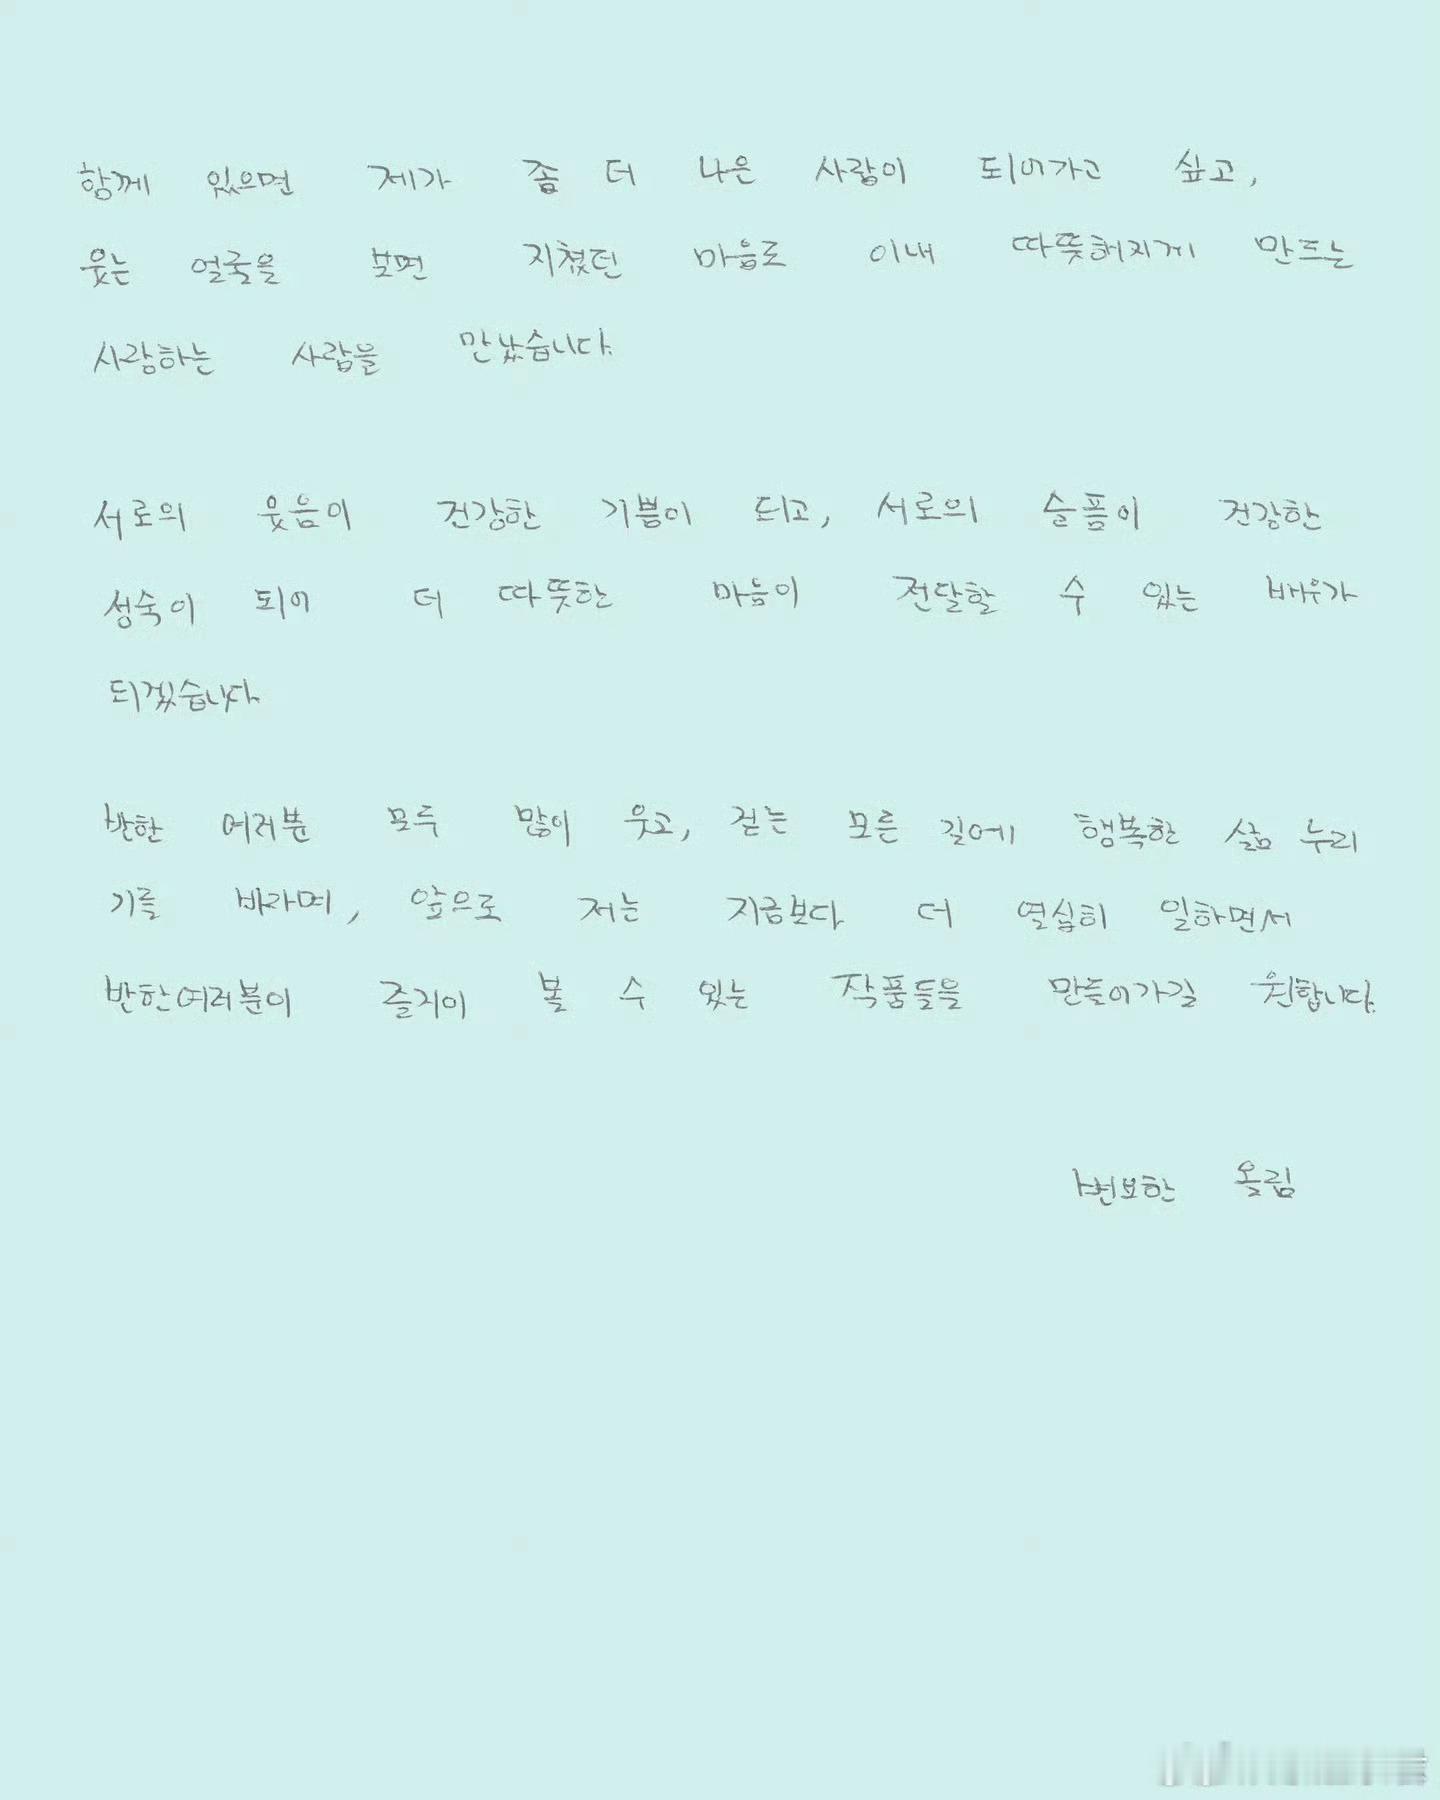 함께 있으면 제가 좀 더 나은 사람이 되어가고 싶고,
웃는 얼굴을 보면 지쳤던 마음로 이내 따뜻해지게 만드는
사랑하는 사람을 만났습니다.
서로의 웃음이 건강한 기쁨이 되고, 서로의 슬픔이 건강한
성숙이 되어 더 따뜻한 마음이 전달할 수 있는 배우가
되겠습니다.
반한 여러분 모두 많이 웃고, 걷는 모든 길에 행복한 삶 누리
기를 바라며, 앞으로 저는 지금보다 더 열심히 일하면서
반한여러분이 즐거이 볼 수 있는 작품들을 만들어가길 원합니다.
변요한 올림